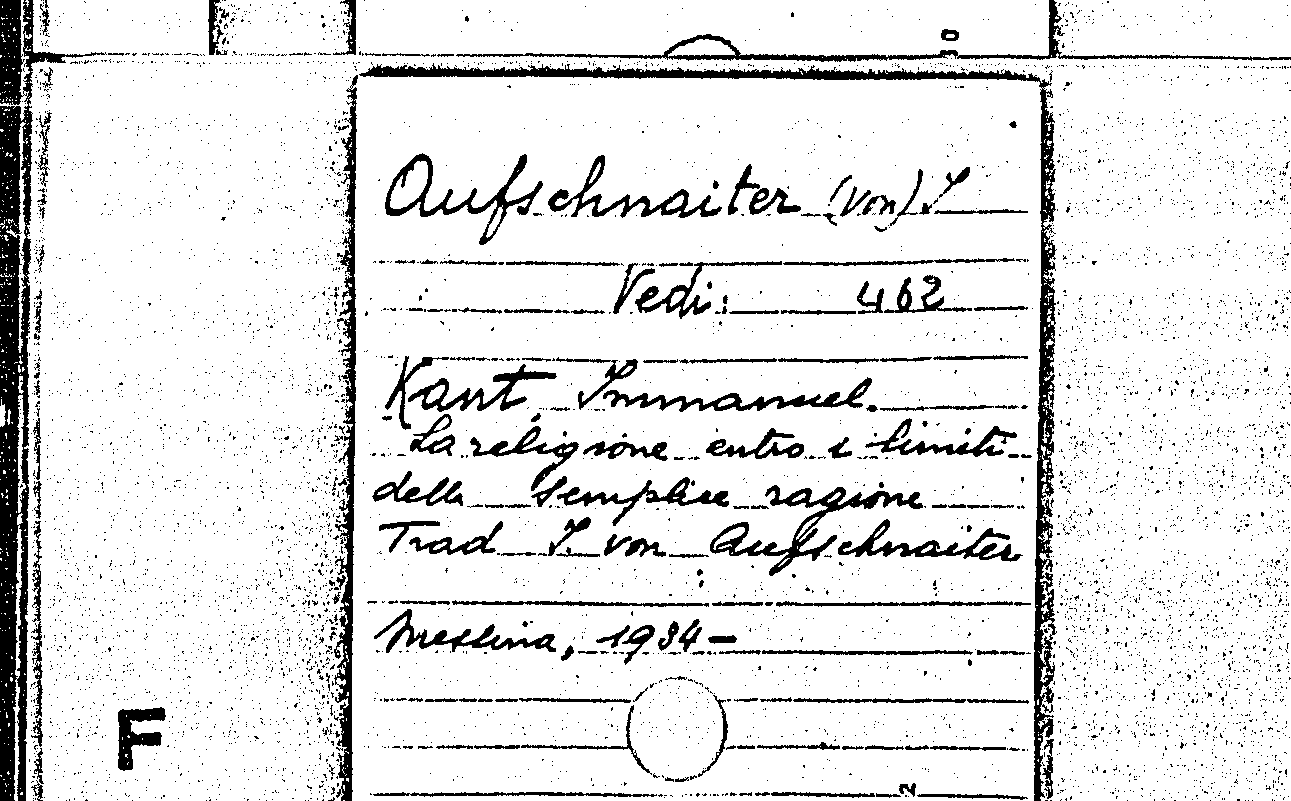 Aufschnaiter (von) I
Vedi: 462
Kant, Immanuel.
La religione entro i limiti
della semplice ragione
Trad I. von Aufschnaiter
Messina, 1934-
F